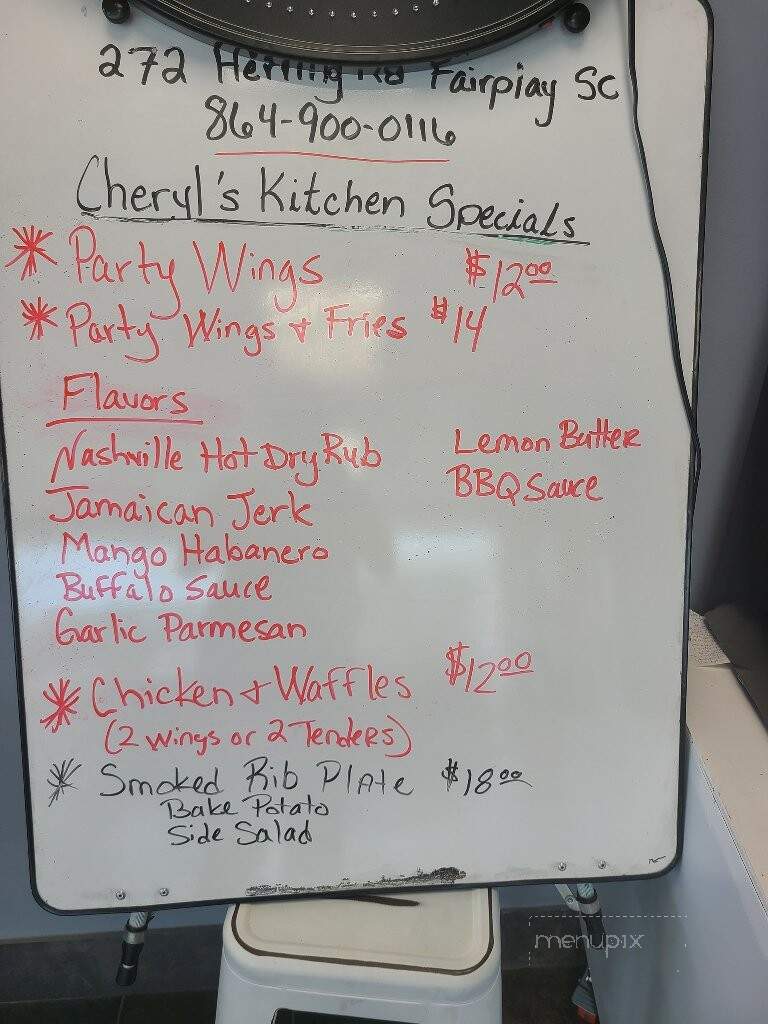 272 Herring Rd Fairplay SC
864-900-0116
Cheryl's Kitchen Specials
* Party Wings $12.00
* Party Wings & Fries $14
Flavors
Nashville Hot Dry Rub
Jamaican Jerk
Mango Habanero
Buffalo Sauce
Garlic Parmesan
Lemon Butter
BBQ Sauce
* Chicken & Waffles $12.00
(2 wings or 2 Tenders)
* Smoked Rib Plate $18.00
Bake Potato
Side Salad
menupix